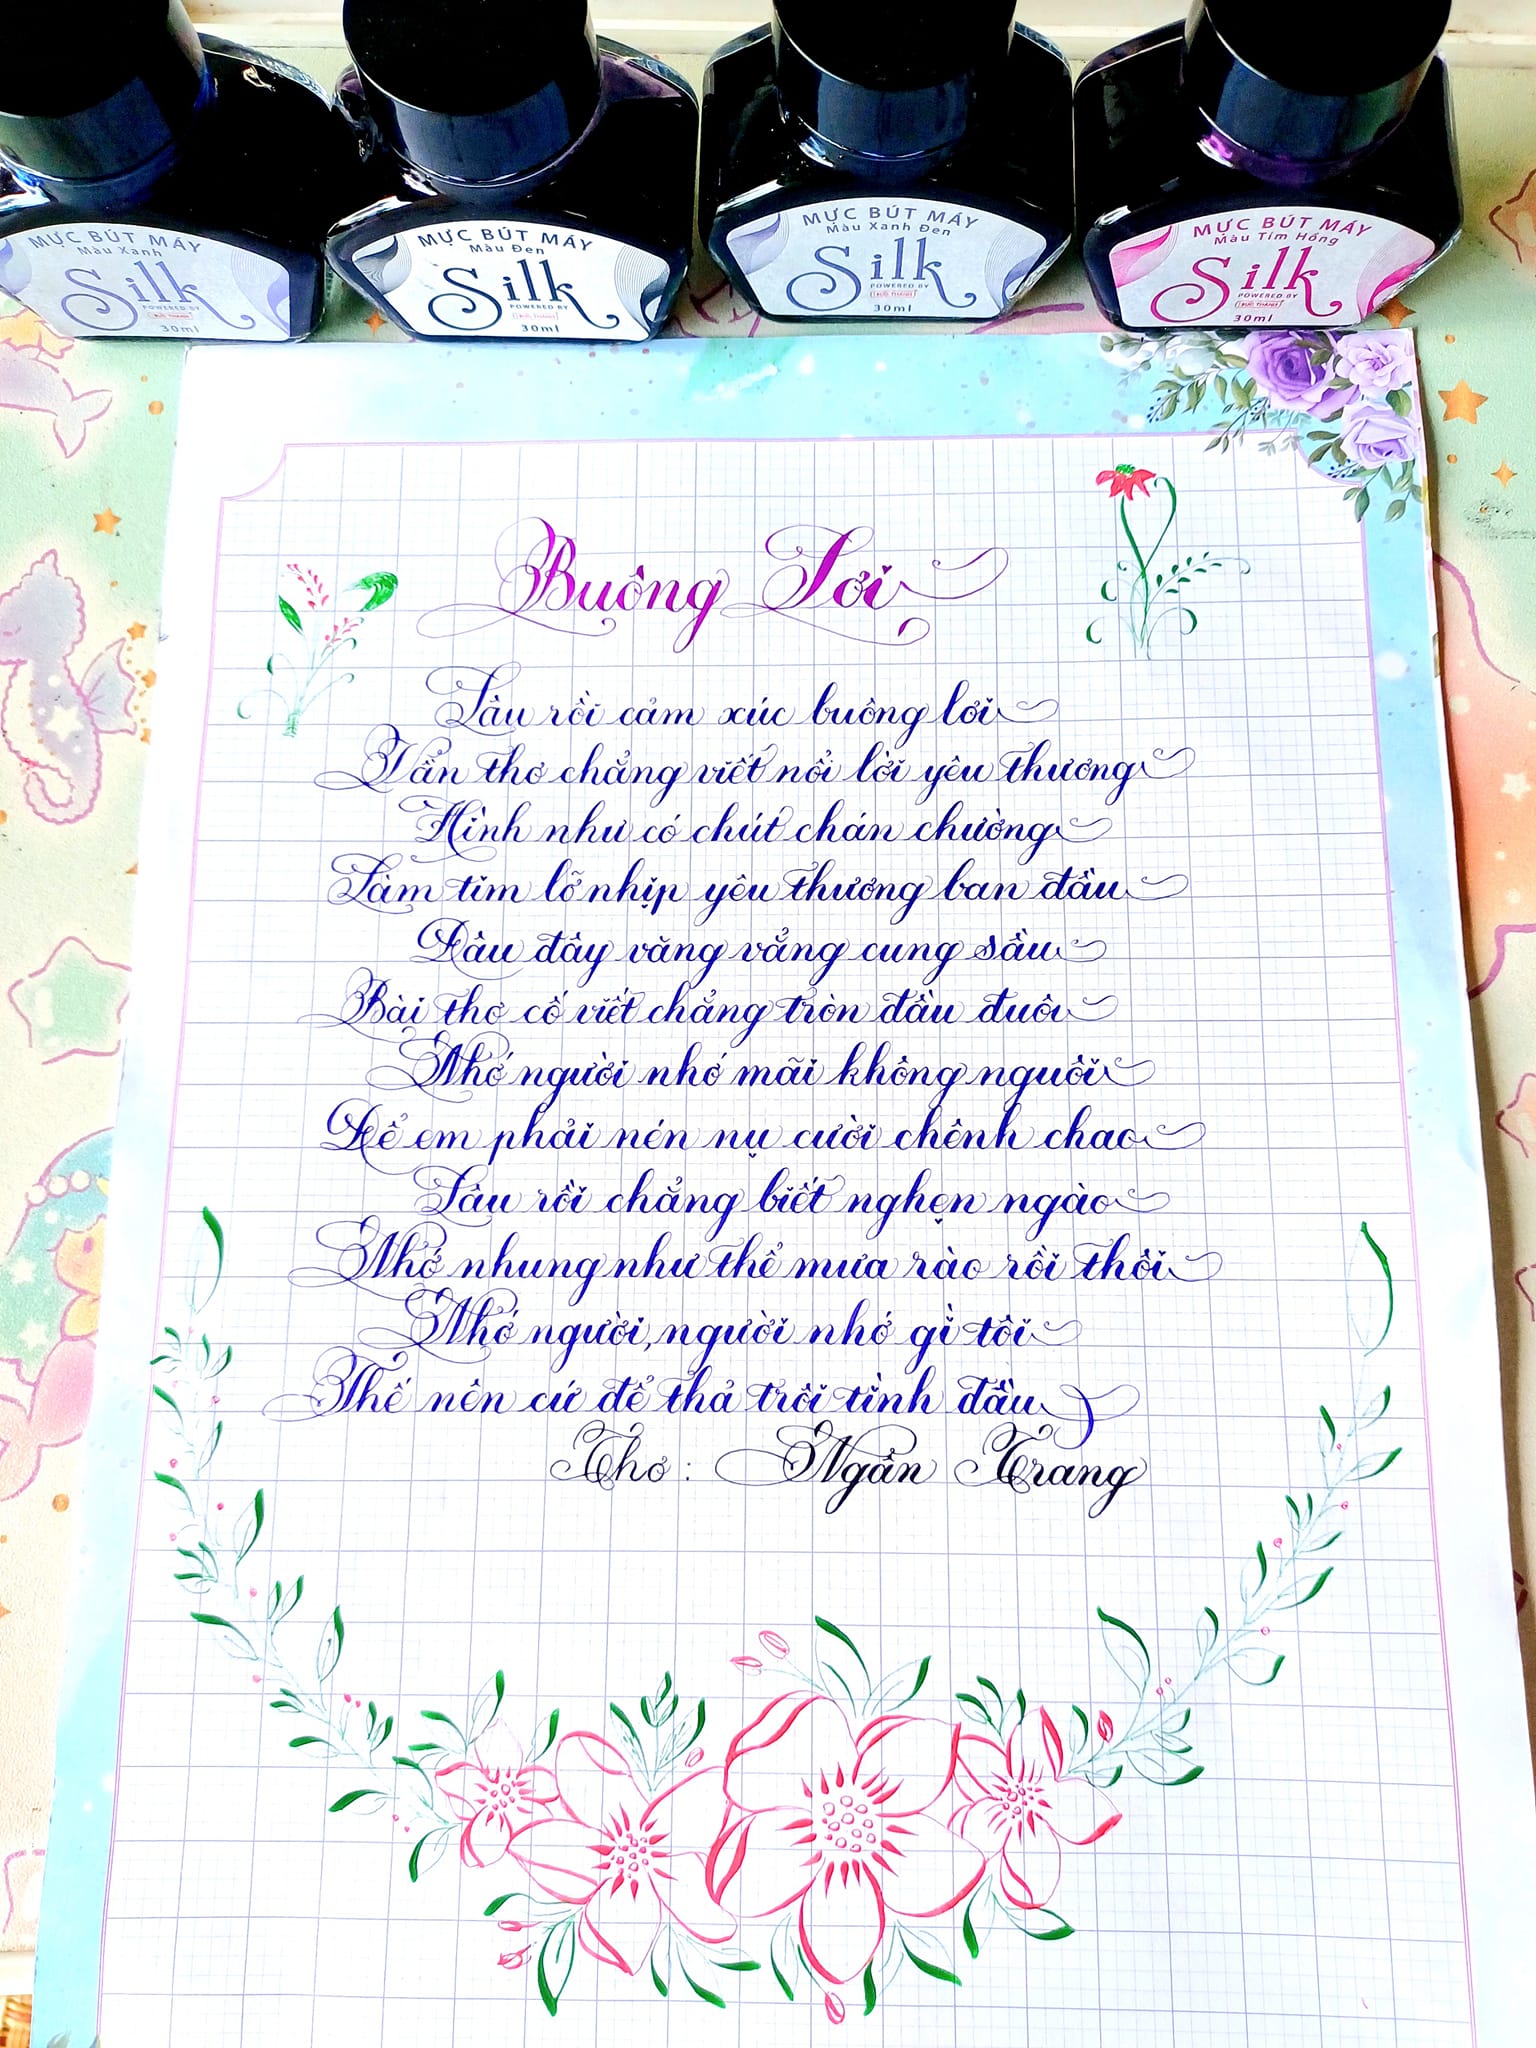 MỰC BÚT MÁY
Màu Xanh
Silk
30ml
MỰC BÚT MÁY
Màu Đen
Silk
POWERED BY
30ml
MỰC BÚT MÁY
Màu Xanh Đen
Silk
POWERED BY
30ml
MỰC BÚT MÁY
Màu Tím Hồng
Silk
POWERED BY
30ml
Buông Lơi
Lâu rồi cảm xúc buông lơi
Vần thơ chẳng viết nổi lời yêu thương
Hình như có chút chán chường
Làm tim lỡ nhịp yêu thương ban đầu
Đâu đây văng vẳng cung sầu
Bài thơ cố viết chẳng tròn đầu đuôi
Nhớ người nhớ mãi không nguôi
Để em phải nén nụ cười chênh chao
Lâu rồi chẳng biết nghẹn ngào
Nhớ nhung như thể mưa rào rồi thôi
Nhớ người, người nhớ gì tôi
Thế nên cứ để thả trôi tình đầu
Thơ: Ngần Trang